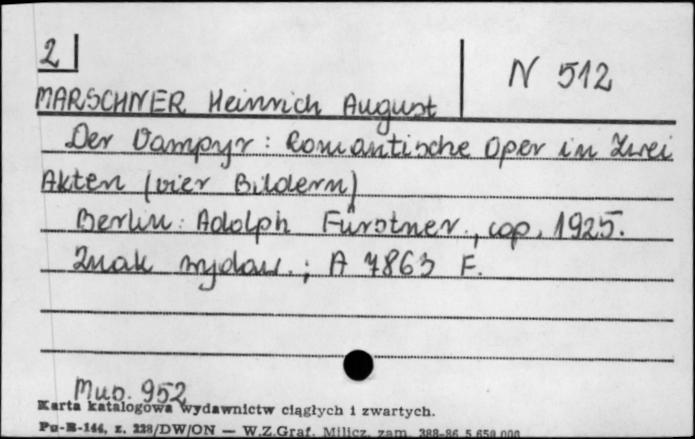 2
N 512
MARSCHNER Heinrich August
Der Vampyr : Romantische Oper in Zwei
Akten (vier Bildern)
Berlin : Adolph Fürstner., cop. 1925.
Znak wydaw. ; A 7863 F.
Mus. 952
Karta katalogowa wydawnictw ciągłych i zwartych.
Pu-B-144, z. 228/DW/ON — W.Z.Graf. Milicz, zam. 388-86 5.650.000